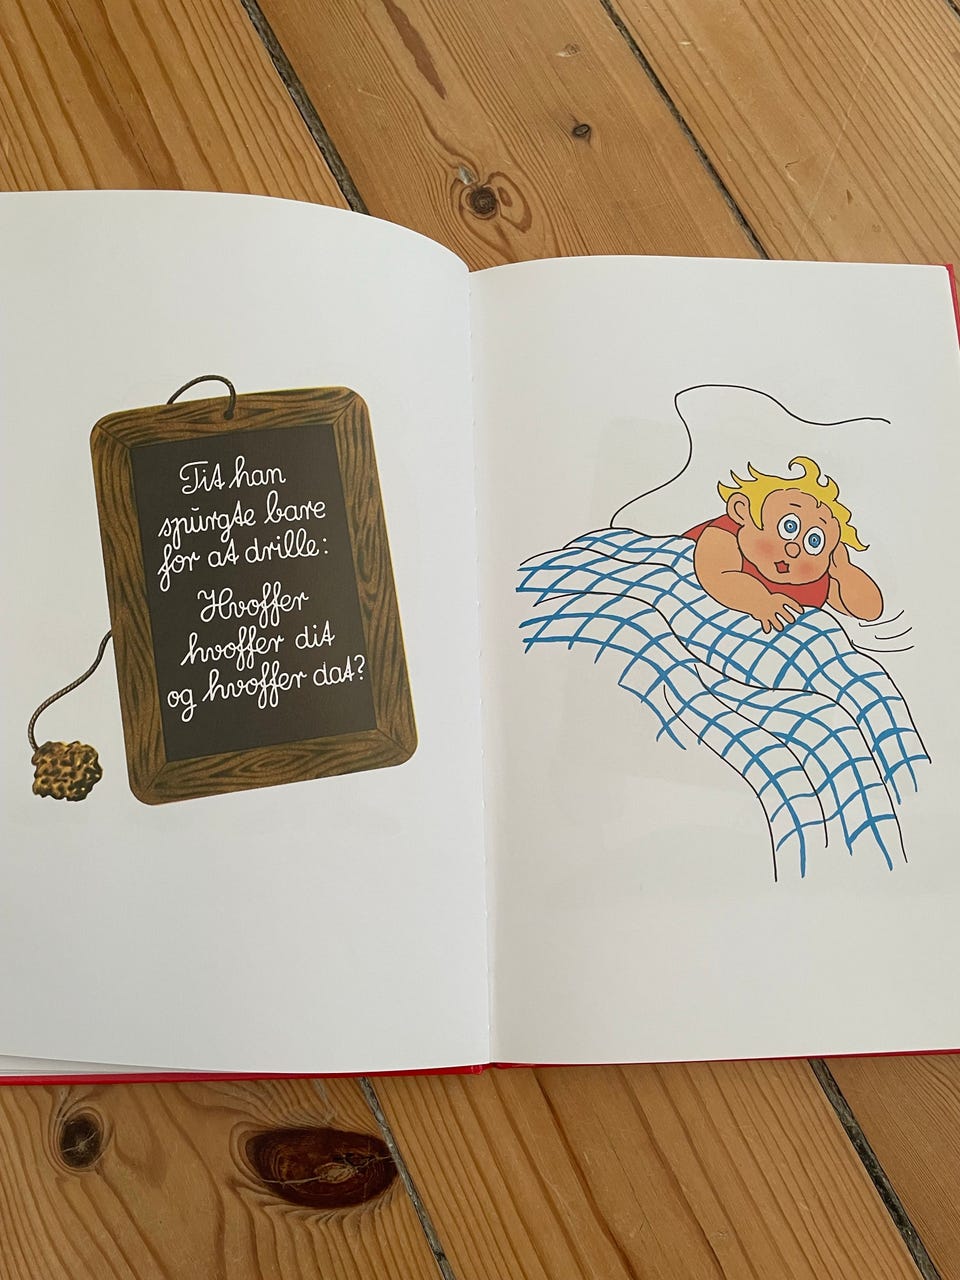 Tit han
spurgte bare
for at drille:
Hvoffer
hvoffer dit
og hvoffer dat?